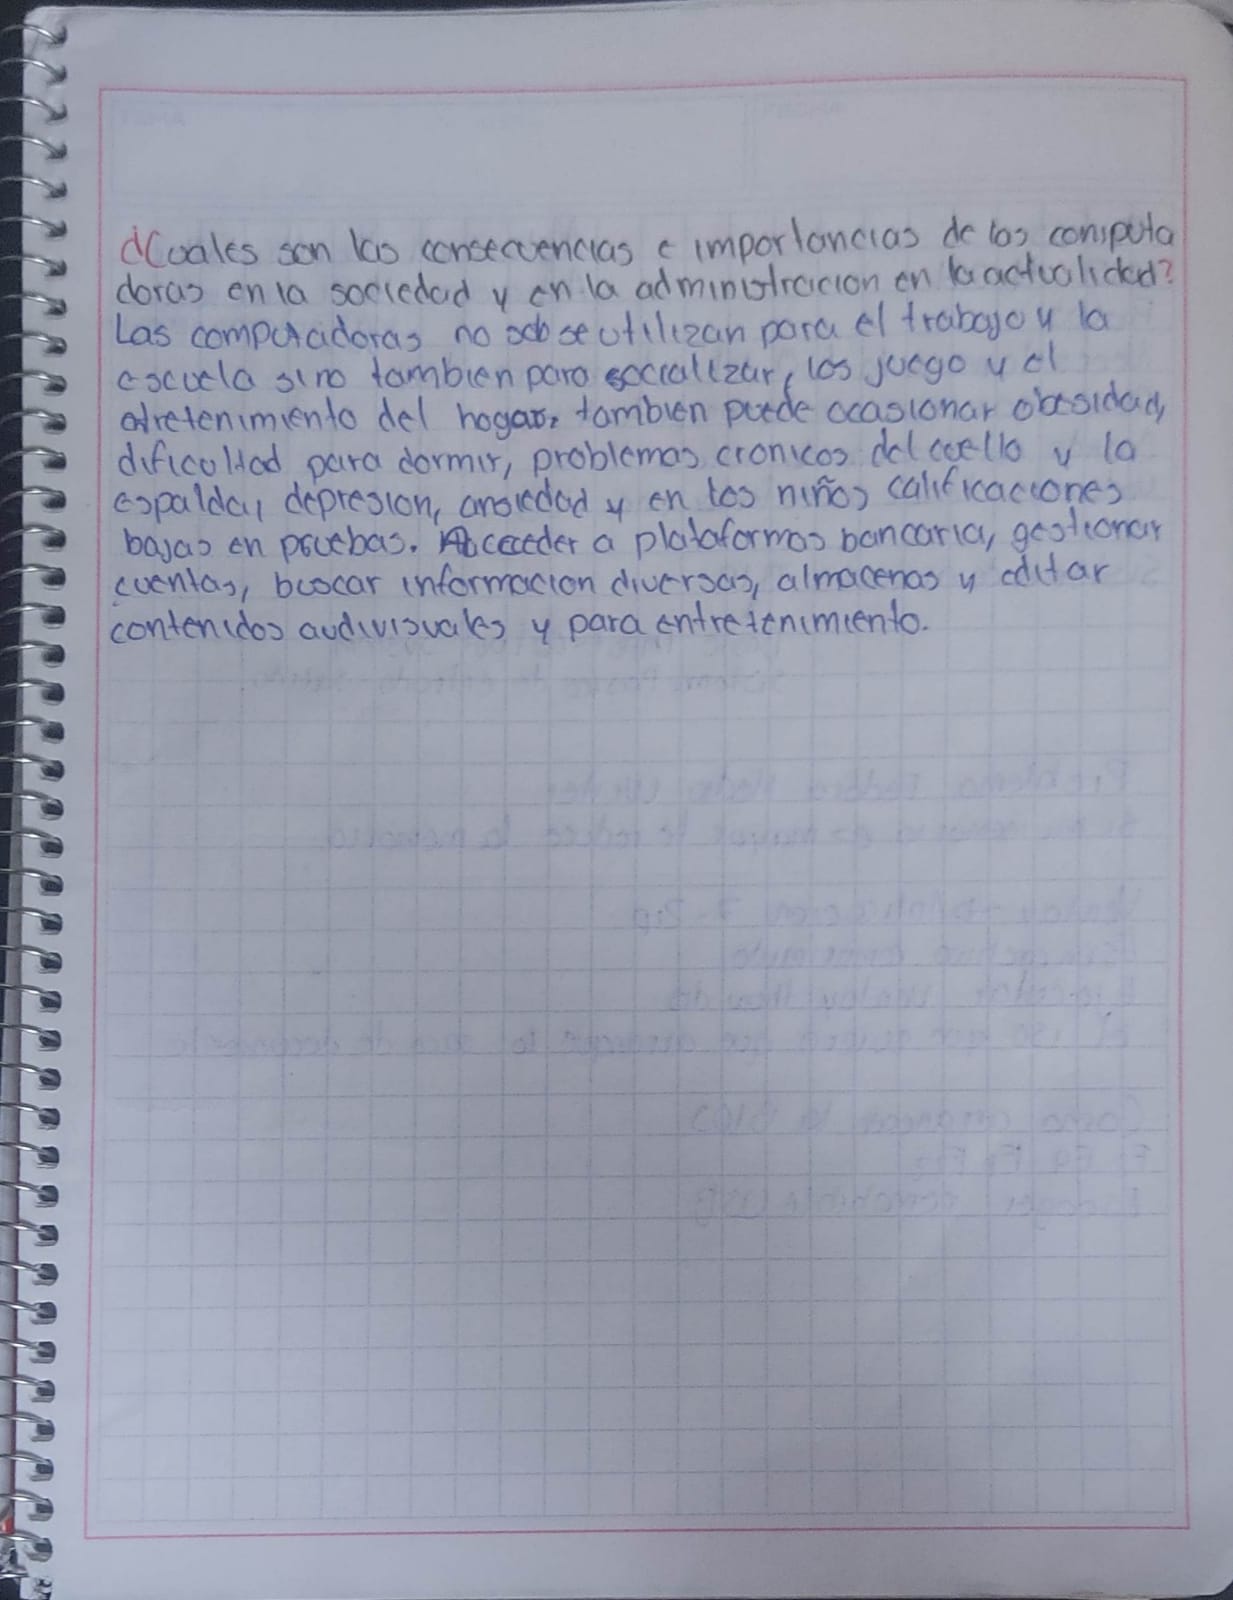 ¿Cuales son las consecuencias e importancias de las computa
doras en la sociedad y en la administracion en la actualidad?
Las computadoras no solo se utilizan para el trabajo y la
escuela sino tambien para socializar, los juego y el
entretenimiento del hogar, tambien puede ocasionar obesidad,
dificultad para dormir, problemas cronicos del cuello y la
espalda, depresion, ansiedad y en los niños calificaciones
bajas en pruebas. Acceder a plataformas bancaria, gestionar
cuentas, buscar informacion diversas, almacenas y editar
contenidos audivisuales y para entretenimiento.